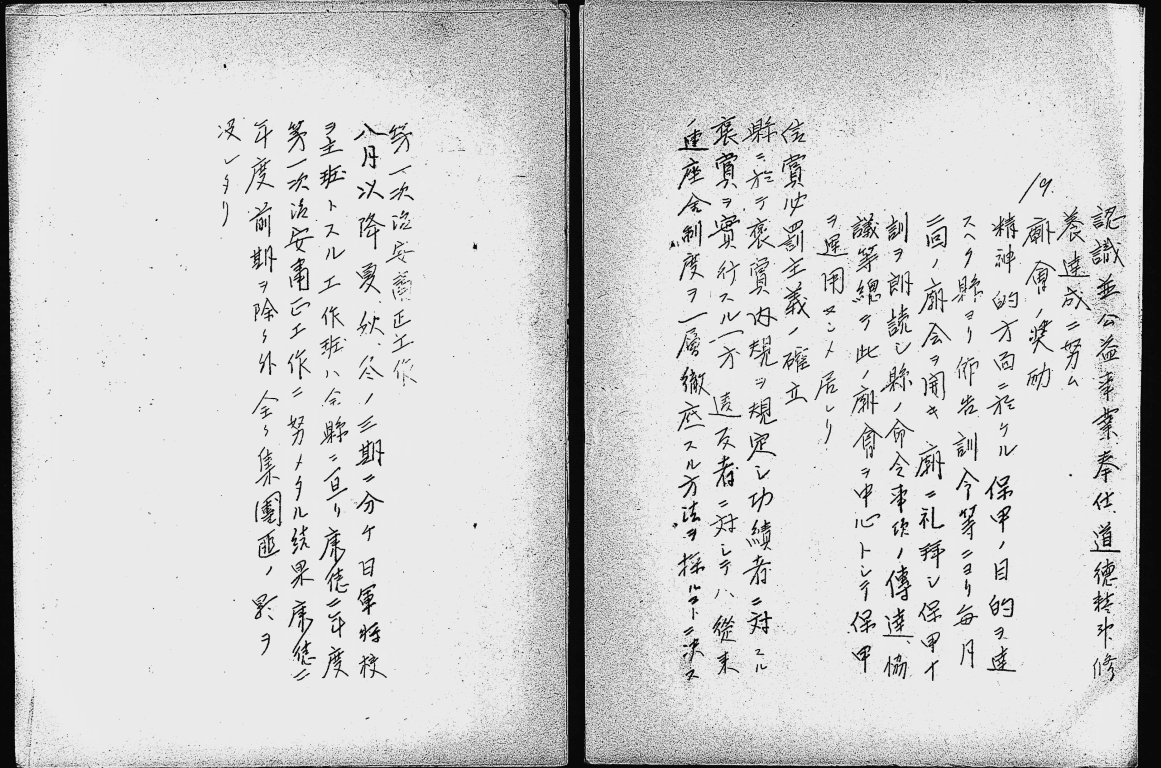 認識並公益事業奉仕、道徳精神修
養達成ニ努ム
19. 廟會ノ奨励
精神的方面ニ於ケル保甲ノ目的ヲ達
スヘク縣ヨリ佈告訓令等ニヨリ毎月
二回ノ廟会ヲ開キ廟ニ礼拜シ保甲十
訓ヲ朗読シ縣ノ命令事項ノ傳達、協
議等總テ此ノ廟會ヲ中心トシテ保甲
ヲ運用セシメ居レリ
信賞必罰主義ノ確立
縣ニ於テ褒賞内規ヲ規定シ功績者ニ対スル
褒賞ヲ實行スル一方違反者ニ対シテハ從来
ノ連座金制度ヲ一層徹底スル方法ヲ採ルコトニ決ス
第一次治安肅正工作
八月以降夏、秋、冬ノ三期ニ分ケ日軍将校
ヲ主班トスル工作班ハ全縣ニ亘リ康徳二年度
第一次治安肅正工作ニ努メタル結果康徳二
年度前期ヲ除ク外全ク集團匪ノ影ヲ
没シタリ